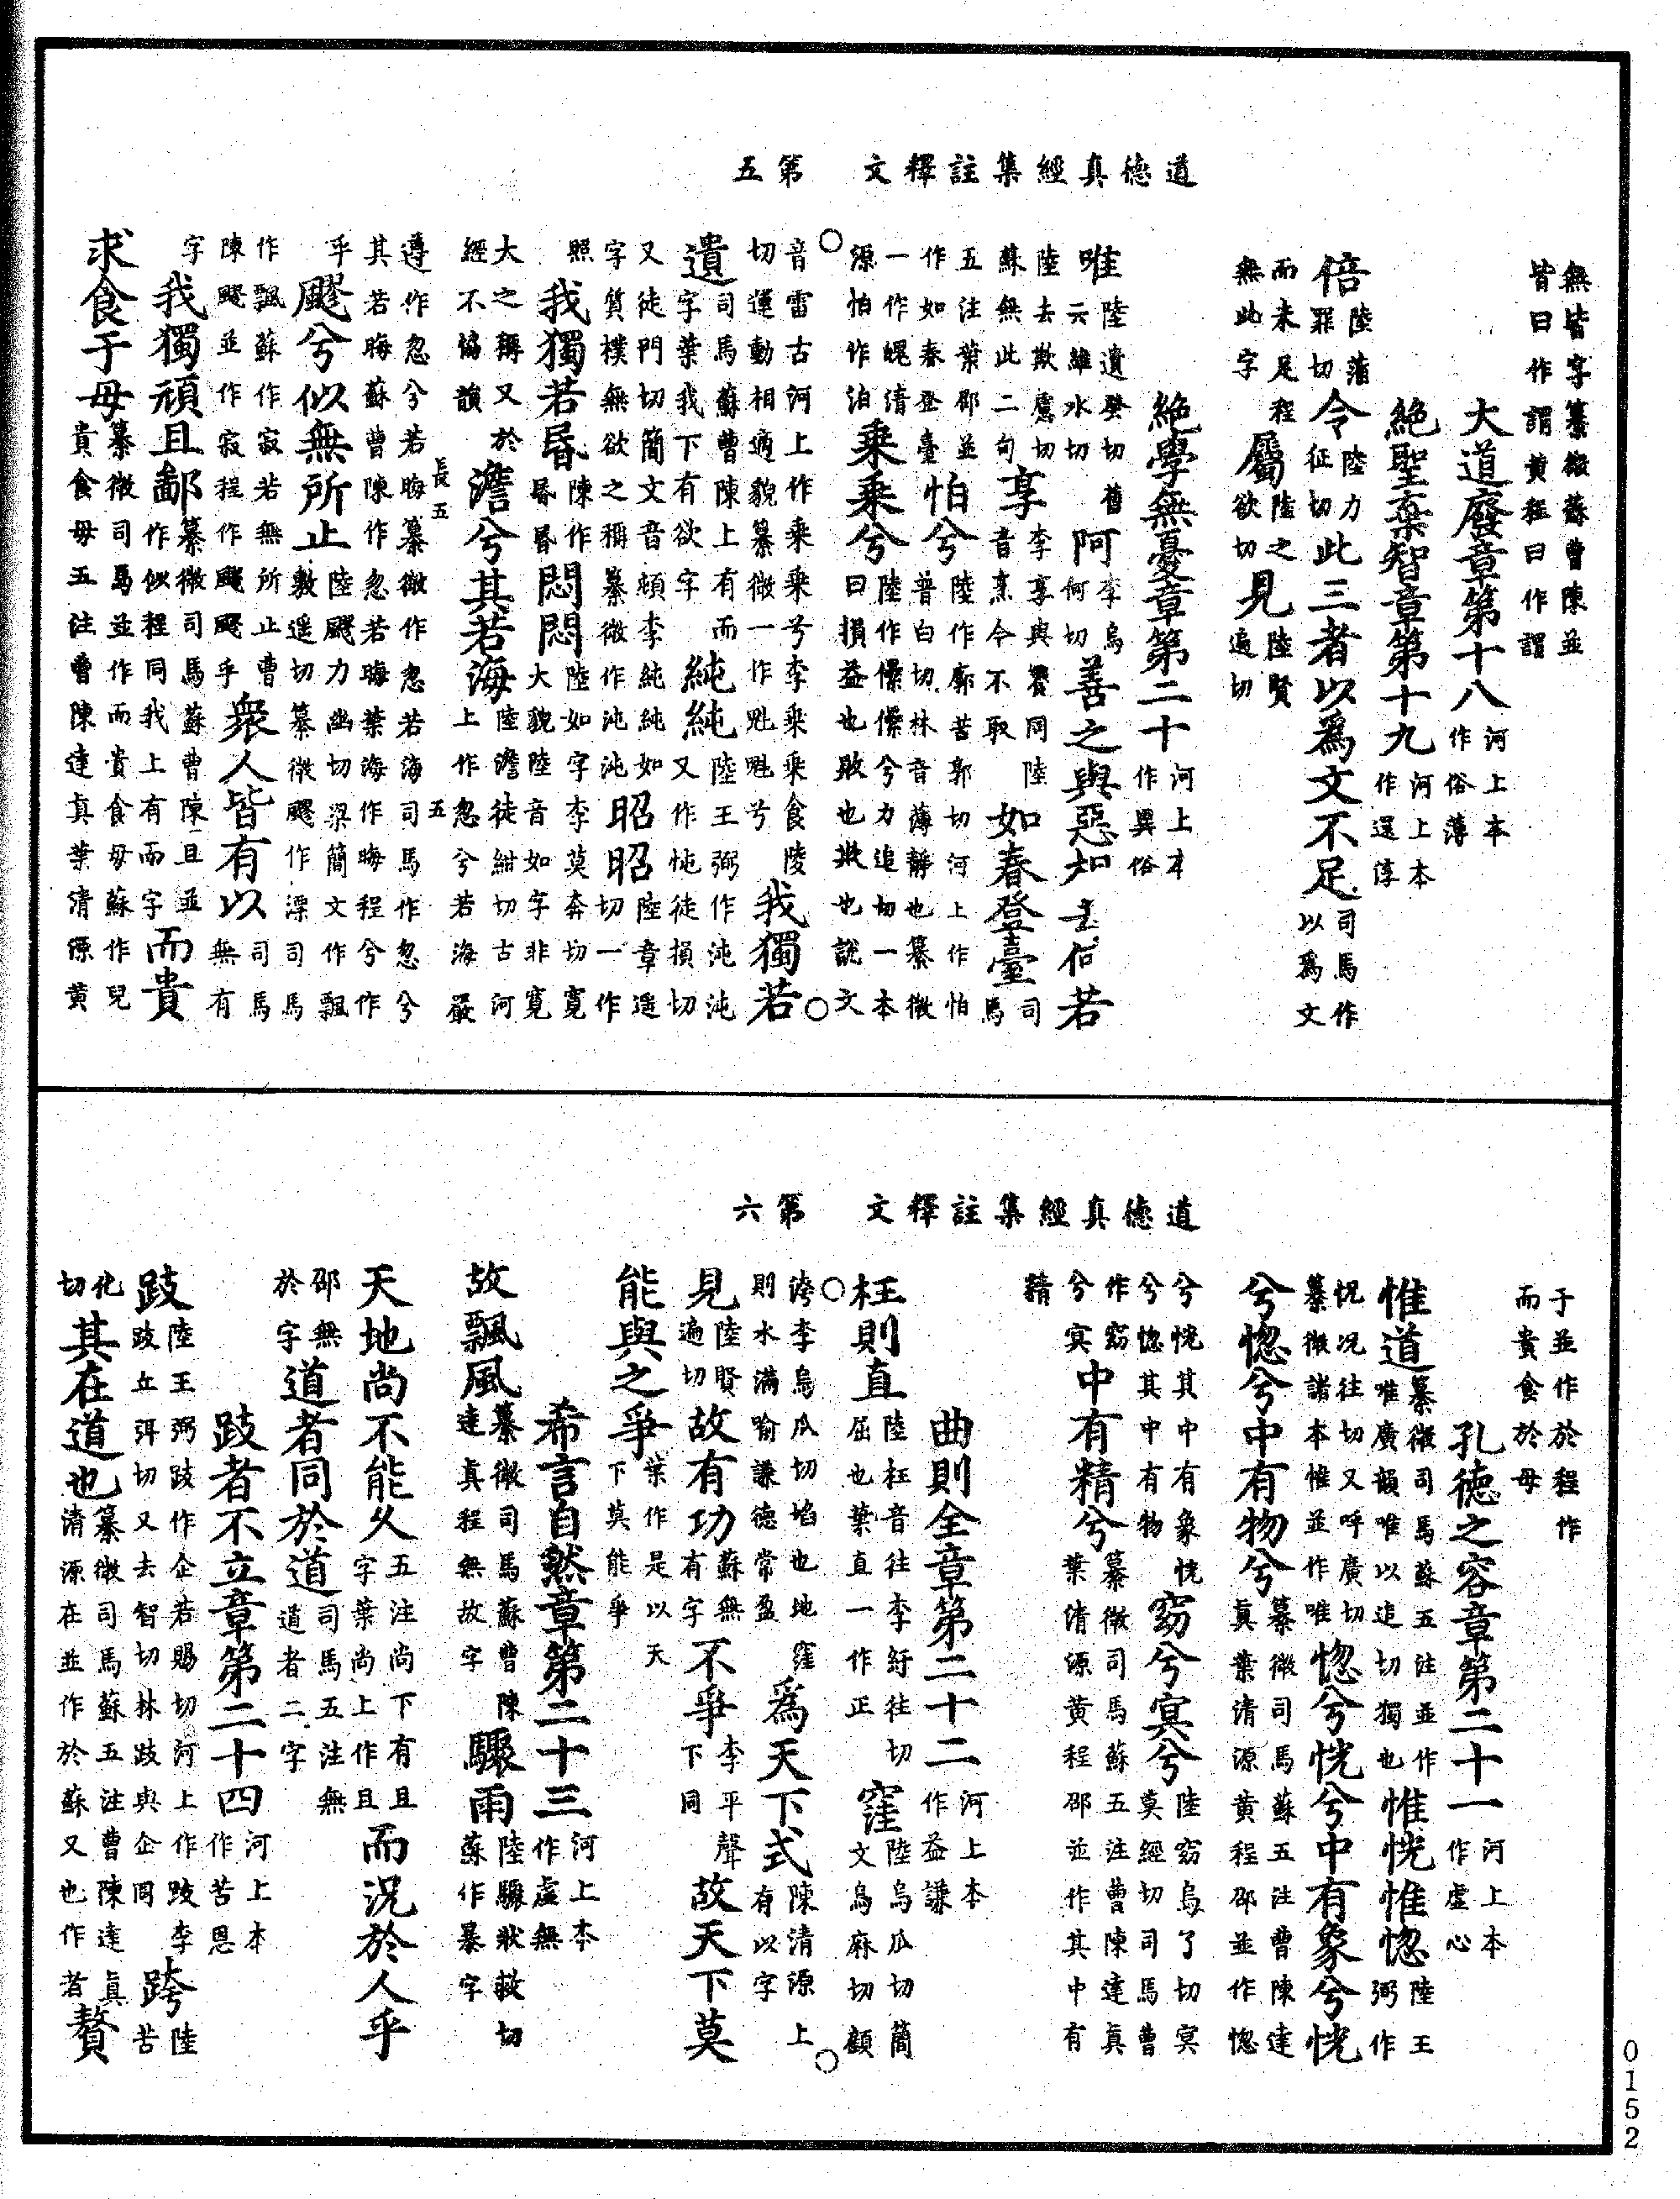 道德真經集註釋文 第五
無皆字纂微蘇曹陳並皆曰作謂黃程曰作謂
大道廢章第十八河上本作俗薄
絕聖棄智章第十九河上本作還淳
倍陸蒲罪切令陸力征切此三者以為文不足司馬作以為文
而未足程無此字屬陸之欲切見陸賢遍切
絕學無憂章第二十河上本作異俗
唯陸遺癸切舊云維水切阿李烏何切善之與惡如去何若
陸去欺慮切蘇無此二句享李享與饗同陸音烹今不取如春登臺司馬
五注葉邵並作如春登臺怕兮陸作廓苦郭切河上作怕普白切林音薄靜也纂微
一作魄清源怕作泊乘乘兮陸作儽儽兮力追切一本曰損益也敗也欺也說文
音雷古河上作乘乘兮李乘乘食陵切運動相適貌纂微一作魁魁兮我獨若
遺司馬蘇曹陳上有而字葉我下有欲字純純陸王弼作沌沌又作忳徒損切
又徒門切簡文音頓李純純如字質樸無欲之稱纂微作沌沌昭昭陸章遥切一作
照我獨若昬陳作昬昬悶悶陸如字李莫奔切寬大貌陸音如字非寬
大之稱又於經不協韻澹兮其若海陸澹徒紺切古河上作忽兮若海嚴
長五 五
遵作忽兮若晦纂微作忽若海司馬作忽兮其若晦蘇曹陳作忽若晦葉海作晦程兮作
乎飂兮似無所止陸飂力幽切梁簡文作飄敷遥切纂微飂作漂司馬
作飄蘇作寂若無所止曹陳飂並作寂程作飂飂乎眾人皆有以司馬無有
字我獨頑且鄙纂微司馬蘇曹陳且並作似程同我上有而字而貴
求食于母纂微司馬並作而貴食母蘇作兒貴食母五注曹陳達真葉清源黃
道德真經集註釋文 第六
于並作於程作而貴食於母
孔德之容章第二十一河上本作虛心
惟道纂微司馬蘇五注並作唯廣韻唯以追切獨也惟恍惟惚陸王弼作
怳况往切又呼廣切纂微諸本惟並作唯惚兮恍兮中有象兮恍
兮惚兮中有物兮纂微司馬蘇五注曹陳達真葉清源黃程邵並作惚
兮恍其中有象恍兮惚其中有物窈兮冥兮陸窈烏了切冥莫經切司馬曹
作窈兮冥中有精兮纂微司馬蘇五注曹陳達真葉清源黃程邵並作其中有
精
曲則全章第二十二河上本作益謙
枉則直陸枉音往李紆往切屈也葉直一作正窪陸烏瓜切簡文烏麻切顧
洿李烏瓜切焰也地窪則水滿喻謙德常盈為天下式陳清源上有以字
見陸賢遍切故有功蘇無有字不爭李平聲下同故天下莫
能與之爭葉作是以天下莫能爭
希言自然章第二十三河上本作虛無
故飄風纂微司馬蘇曹陳達真程無故字驟雨陸驟狀救切蘇作暴字
天地尚不能久五注尚下有且字葉尚上作且而況於人乎
邵無於字道者同於道司馬五注無道者二字
跂者不立章第二十四河上本作苦恩
跂陸王弼跂作企若賜切河上作跂李跂立洱切又去智切林跂與企同跨陸苦
化切其在道也纂微司馬蘇五注曹陳達真清源在並作於蘇又也作者贅
0152